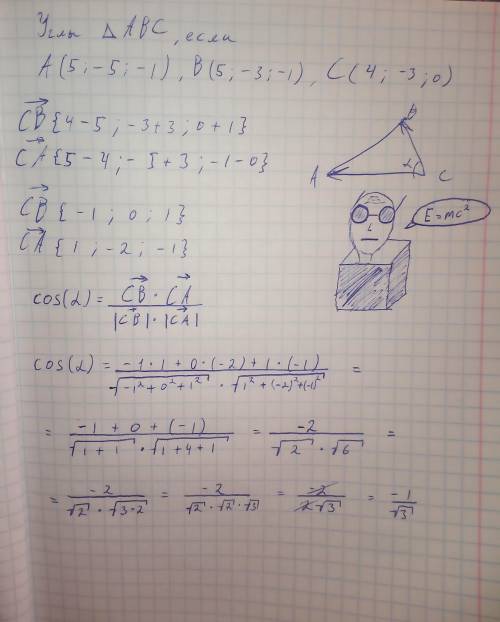 Углы △ABC, если
A(5;-5;-1), B(5;-3;-1), C(4;-3;0)
CB{4-5; -3+3; 0+1}
CA{5-4; -5+3; -1-0}
CB{-1; 0; 1}
CA{1; -2; -1}
B
A
α
C
E=mc²
cos(α) = CB · CA / |CB| · |CA|
cos(α) = -1·1 + 0·(-2) + 1·(-1) / √-1²+0²+1² · √1²+(-2)²+(-1)² =
= -1 + 0 + (-1) / √1+1 · √1+4+1 = -2 / √2 · √6 =
= -2 / √2 · √3·2 = -2 / √2 · √2 · √3 = -2 / 2√3 = -1 / √3